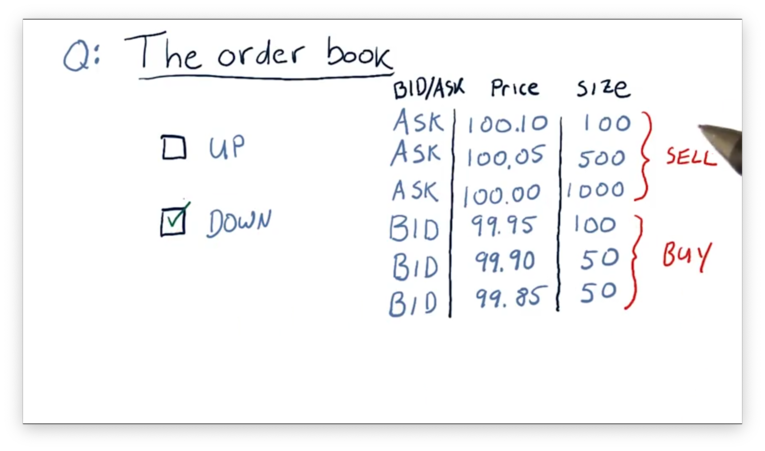 Q: The order book
BID/ASK Price Size
ASK 100.10 100
ASK 100,05 500
ASK 100.00 1000
SELL
BID 99.95 100
BID 99.90 50
BID 99.85 50
BUY
UP
DOWN